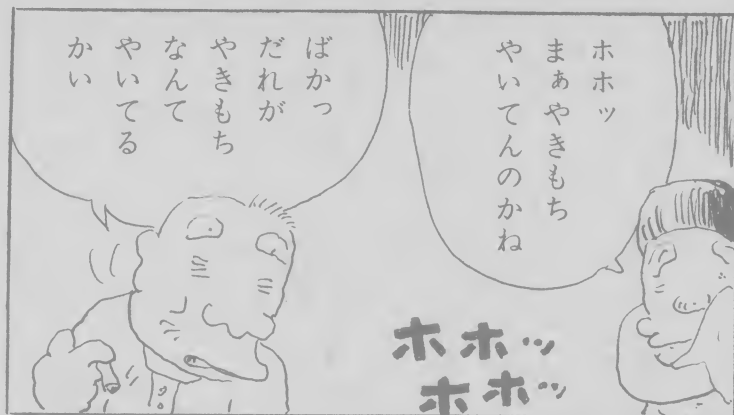 ホホッ
まぁやきもち
やいてんのかね
ばかっ
だれが
やきもち
なんて
やいてる
かい
ホホッ
ホホッ